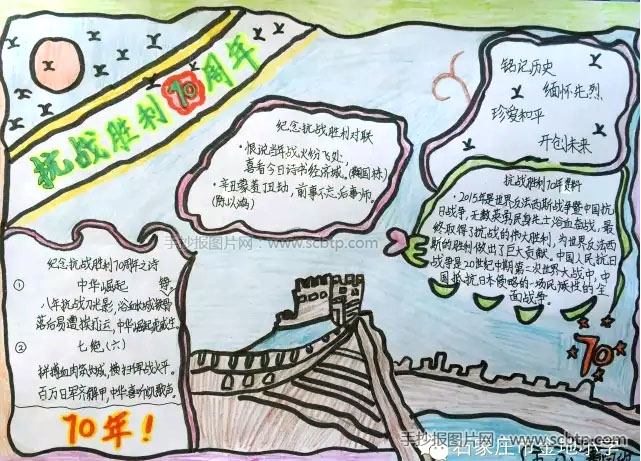 抗战胜利70周年
铭记历史
缅怀先烈
珍爱和平
开创未来
纪念抗战胜利对联
恨说当年战火纷飞处,
喜看今日诗书经济城。
前事不忘后事师。
抗战胜利70年资料
2015年是世界反法西斯战争暨中国抗
日战争,无数英勇民身先士浴血奋战,最
终取得了抗战的伟大胜利,为世界反法西
斯的胜利做出了巨大贡献。中国人民抗日
战争是20世纪中期第二次世界大战中,中
国抵抗日本侵略的一场民族性的全
面战争。
手抄报图片网:www.scbtp.com
纪念抗战胜利70周年之诗
① 中华崛起
八年抗战刀光影,浴血
落后易遭挨打运,中华崛起
② 七绝(六)
拼搏血肉筑长城,横扫
百万日军齐解甲,中华
70年!
70
手抄报图片网:www.scbtp.com
石家庄市金地小学